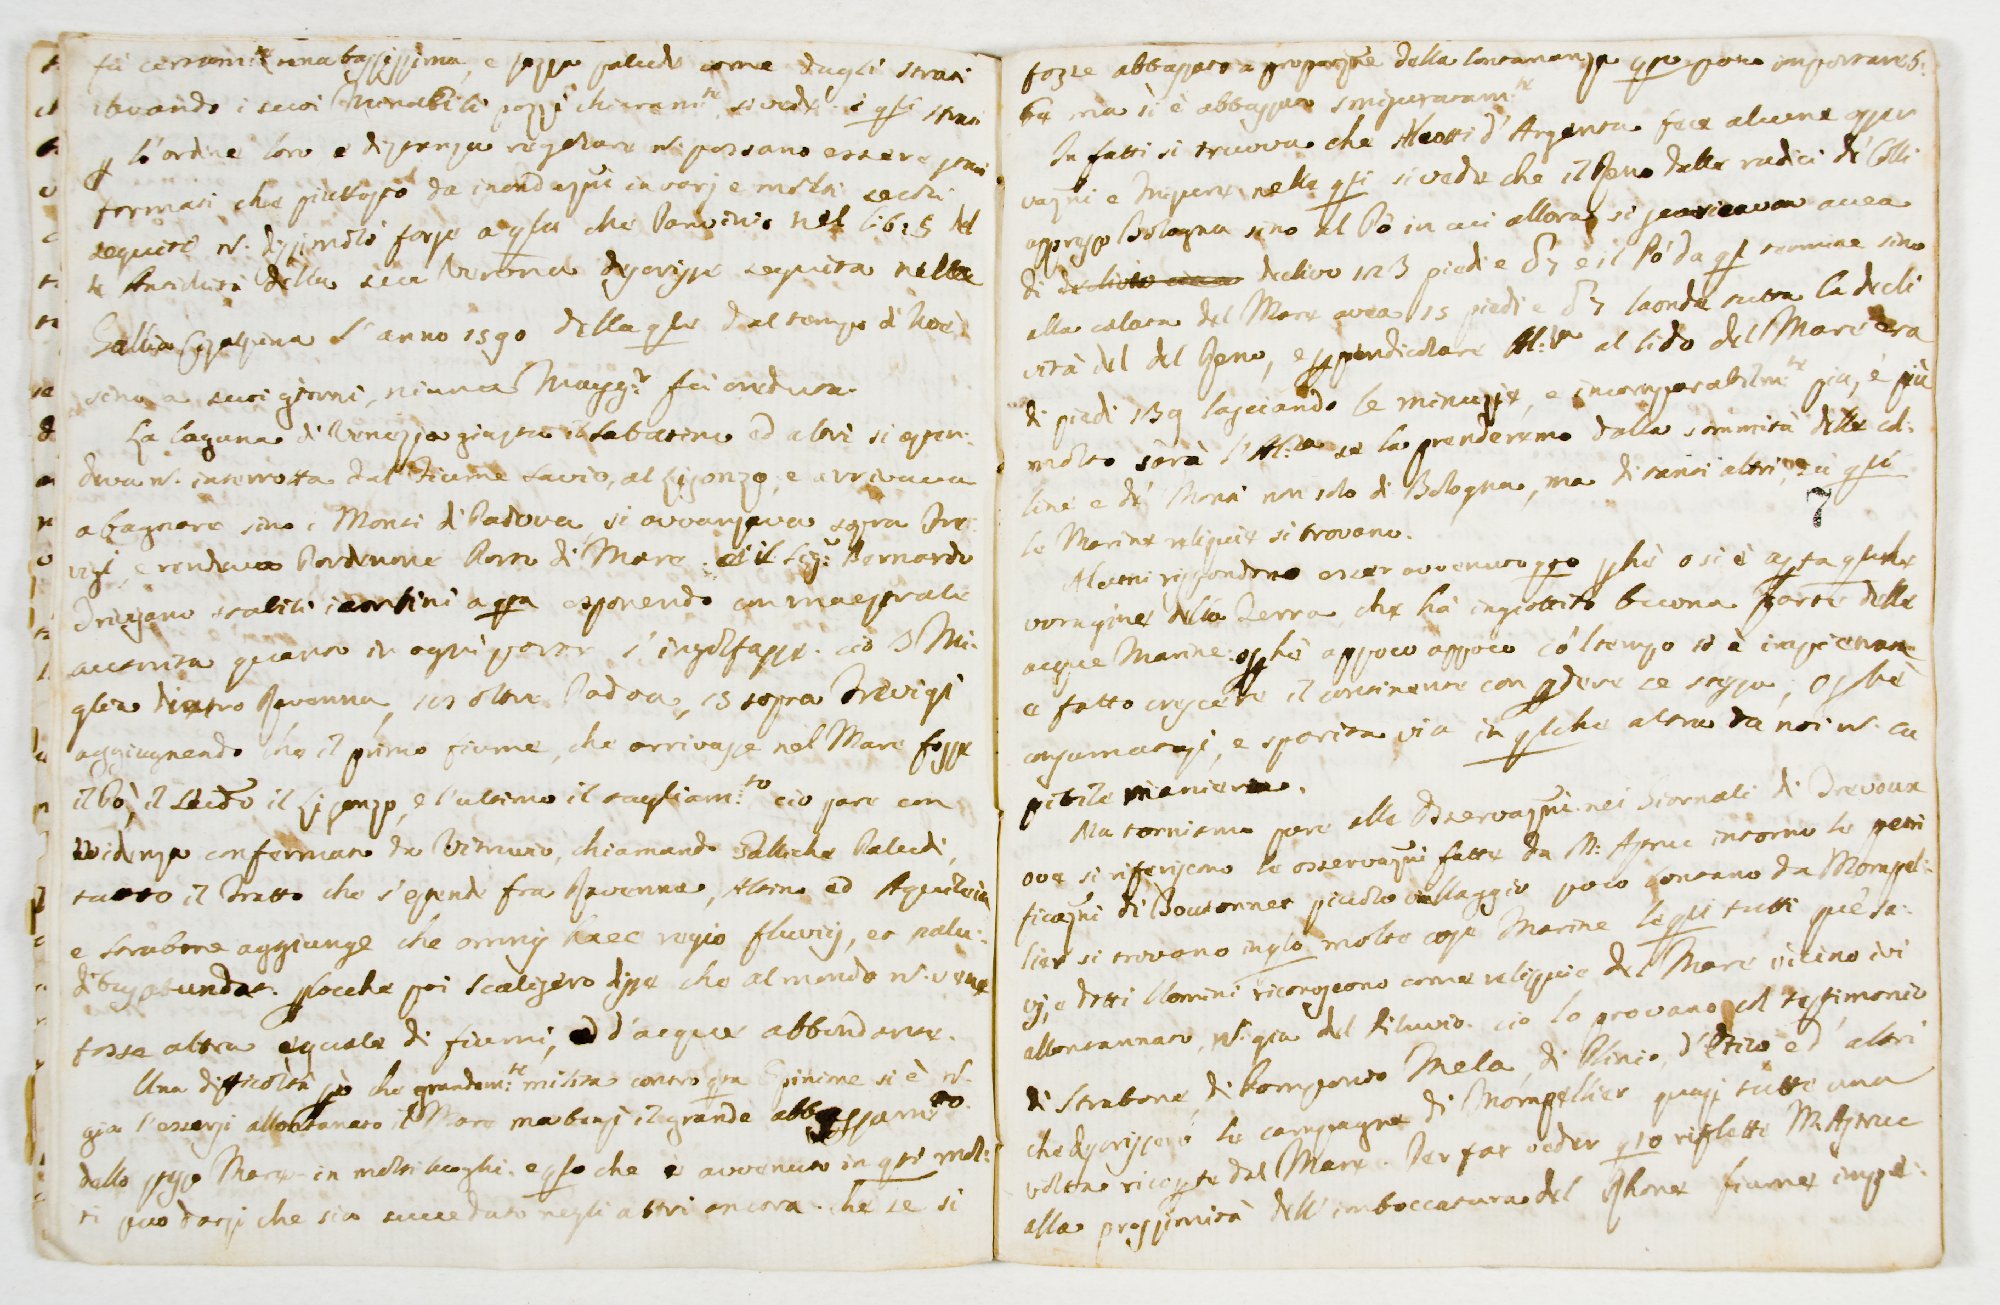 fù certam.te una bassissima, e sozza palude come dagli strati
cavando i suoi Venabili pozzi chiaram.te si vede: i qsi strati
p l'ordine loro e distanza regolare n. possano essere stati
formati che piuttosto da inondazni in varj e molti secoli
seguite n. dissimili forse a qlla che Panvinio nel lib: 5 del
le Antichità della sua Verona descrisse seguita nella
Gallia Cisalpina l'anno 1590 della qle dal tempo di Noè
sino a suoi giorni, niuna Magg.r fù creduta.
La laguna di Venezia giusta il Sabatino ed altri si esten:
deva n. interrotta dal Fiume Savio, al Lisonzo, e arrivava
a bagnare sino i Monti di Padova si avvanzava sopra Tre:
vigi, e rendeva Pordenone Porto di Mare: ed il Sig.r Bernardo
Trevisano stabilì i confini a qsta esponendo con maestrale
accortezza quanto in ogni parte s'ingolfasse. cioè 3 Mi:
glia dietro Ravenna, oltre Padoa, 15 sopra Trevigi
aggiugnendo che il primo fiume, che arrivasse nel Mare fosse
il Pò, il secdo il Lisonzo, e l'ultimo il Tagliam.to ciò pare con
evidenza confermato da Vitruvio, chiamando Galliche Paludi,
tutto il Tratto che s'estende fra Ravenna, Altino ed Aquileia
e Strabone aggiunge che omnis haec regio fluviis, et palu:
dibus abundat. pocche poi Scaligero disse che al mondo n. v'ene
fosse altra eguale di fiumi, ed d'acque abbondante.
Una difficoltà pò che grandem.te milita contro qsta Opinione si è n.
gia l'essersi allontanato il Mare ma bensì il grande abbassam.to
dello stesso Mare in molti luoghi. e qlo che è avvenuto in qsti mol:
ti puo darsi che sia succeduto negli altri ancora. che se si
fozse abbassato a proporzne della lontananza qsto potea importare 5:
6e ma si è abbassato smisuratam.te
In fatti si truova che Aleotti d'Argenta fece alcune osser
vazni e Misure, nelle qli si vede che il Reno dalle radici de' Colli
appresso Bologna sino al Pò in cui allora si scaricava avea
di declivo 123 piedi e 87 e il Pò da qsto termine sino
alla calata del Mare avea 15 piedi e 87 laonde tutta la decli
vità del del Reno, e ppendicolare Al:za al lido del Mare era
di piedi 139 lasciando le minuzie, e incomparabilm.te più, è più
molto sarà l'Al:za se la prenderemo dalla sommità delle col:
line e de' Monti non solo di Bologna, ma di tanti altri, ne qli
le Marine reliquie si trovano.
7
Alcuni rispondono esser avvenuto qsto pchè o si è apta qlche
voragine della Terra, che hà inghiottito buona parte delle
acque Marine. o pchè appoco appoco col tempo si è impietrata
e fatto crescere il continente con pdere se stessa, o pchè
consumatasi, e sparita via in qlche altra da noi n. ca
pibile maniera.
Ma torniamo pure alle Osservazni nei Giornali di Trevoux
ove si riferiscono le osservazni fatte da M: Astruc intorno le petri
ficazni di Boutonnet picciolo villaggio poco lontano da Mompel:
lier si trovano in qlo molte cose Marine le qli tutti que' sa:
vj, e dotti Uomini riconoscono come reliquie del Mare vicino ivi
allontanato, n. gia del Diluvio. ciò lo provano col testimonio
di Strabone, di Pomponio Mela, di Plinio, d'Etico ed altri
che descrissero le campagne di Mompellier quasi tutte una
volta ricopte dal Mare. Per far veder qsto riflette M. Astruc
alla prossimità dell'imboccatura del Rhone fiume impe: